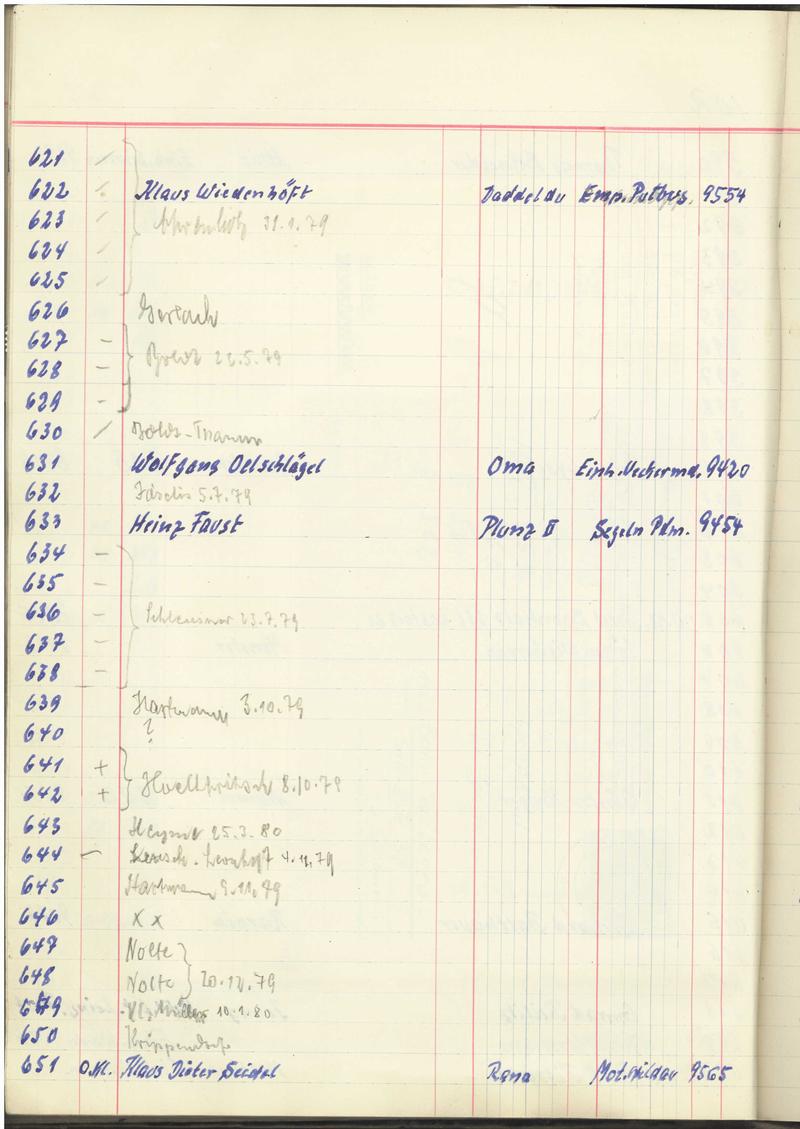 621 -
622 - Klaus Wiedenhöft Daddeldu Emp. Putbus. 9554
623 - 31.1.79
624 -
625 -
626 Gerlach
627 -
628 - 22.5.79
629 -
630 -
631 Wolfgang Oelschlägel Oma Einh. Neckermd. 9420
632 5.7.79
633 Heinz Faust Plunz II Segeln Pdm. 9454
634 -
635 -
636 - 23.7.79
637 -
638 -
639 Hartmann 3.10.79
640 ?
641 +
642 + 8.10.79
643 Heyne 25.3.80
644 - 4.11.79
645 Hartmann 9.11.79
646 x x
647 Nolte
648 Nolte 20.12.79
649 10.1.80
650 Krippendorf
651 O.Kl. Klaus Dieter Seidel Rana Mot. Wildau 9565